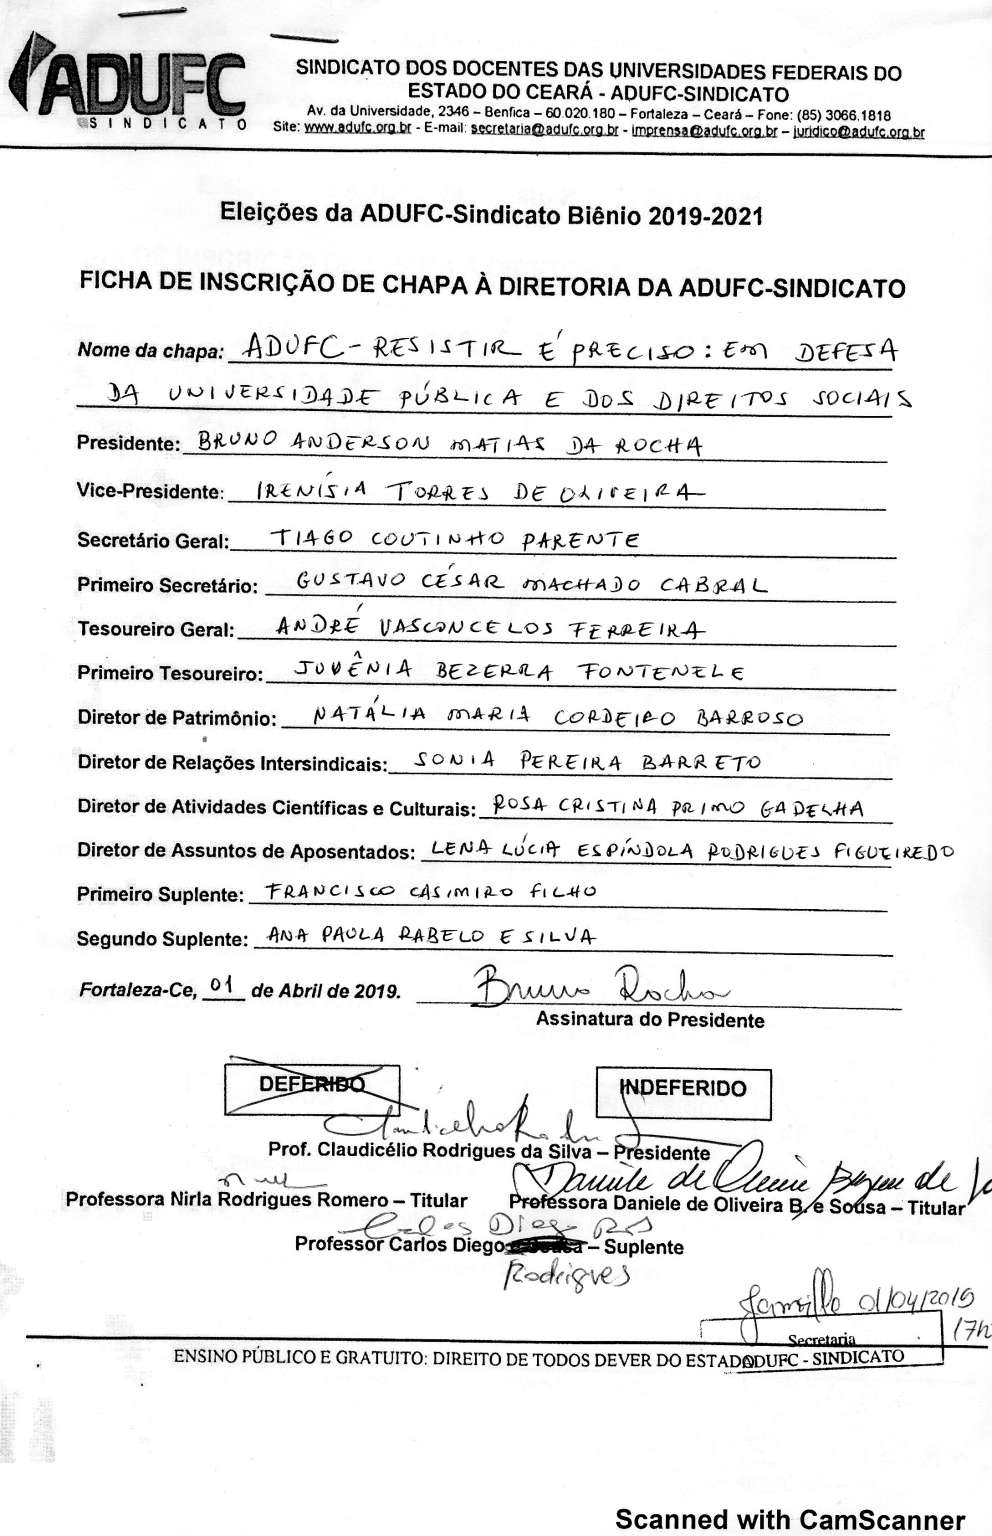 ADUFC
SINDICATO
SINDICATO DOS DOCENTES DAS UNIVERSIDADES FEDERAIS DO
ESTADO DO CEARÁ - ADUFC-SINDICATO
Av. da Universidade, 2346 – Benfica – 60.020.180 – Fortaleza – Ceará – Fone: (85) 3066.1818
Site: www.adufc.org.br - E-mail: secretaria@adufc.org.br - imprensa@adufc.org.br – juridico@adufc.org.br
Eleições da ADUFC-Sindicato Biênio 2019-2021
FICHA DE INSCRIÇÃO DE CHAPA À DIRETORIA DA ADUFC-SINDICATO
Nome da chapa: ADUFC - RESISTIR É PRECISO: EM DEFESA
DA UNIVERSIDADE PÚBLICA E DOS DIREITOS SOCIAIS
Presidente: BRUNO ANDERSON MATIAS DA ROCHA
Vice-Presidente: IRENÍSIA TORRES DE OLIVEIRA
Secretário Geral: TIAGO COUTINHO PARENTE
Primeiro Secretário: GUSTAVO CÉSAR MACHADO CABRAL
Tesoureiro Geral: ANDRÉ VASCONCELOS FERREIRA
Primeiro Tesoureiro: JUVÊNIA BEZERRA FONTENELE
Diretor de Patrimônio: NATÁLIA MARIA CORDEIRO BARROSO
Diretor de Relações Intersindicais: SONIA PEREIRA BARRETO
Diretor de Atividades Científicas e Culturais: ROSA CRISTINA PRIMO GADELHA
Diretor de Assuntos de Aposentados: LENA LÚCIA ESPÍNDOLA RODRIGUES FIGUEIREDO
Primeiro Suplente: FRANCISCO CASIMIRO FILHO
Segundo Suplente: ANA PAULA RABELO E SILVA
Fortaleza-Ce, 01 de Abril de 2019. Bruno Rocha
Assinatura do Presidente
DEFERIDO INDEFERIDO
Prof. Claudicélio Rodrigues da Silva – Presidente
Daniele de
Professora Nirla Rodrigues Romero – Titular Professora Daniele de Oliveira B. e Sousa – Titular
Carlos Diego
Professor Carlos Diego – Suplente
Rodrigues
01/04/2019
17h
Secretaria
ENSINO PÚBLICO E GRATUITO: DIREITO DE TODOS DEVER DO ESTADO
ADUFC - SINDICATO
Scanned with CamScanner